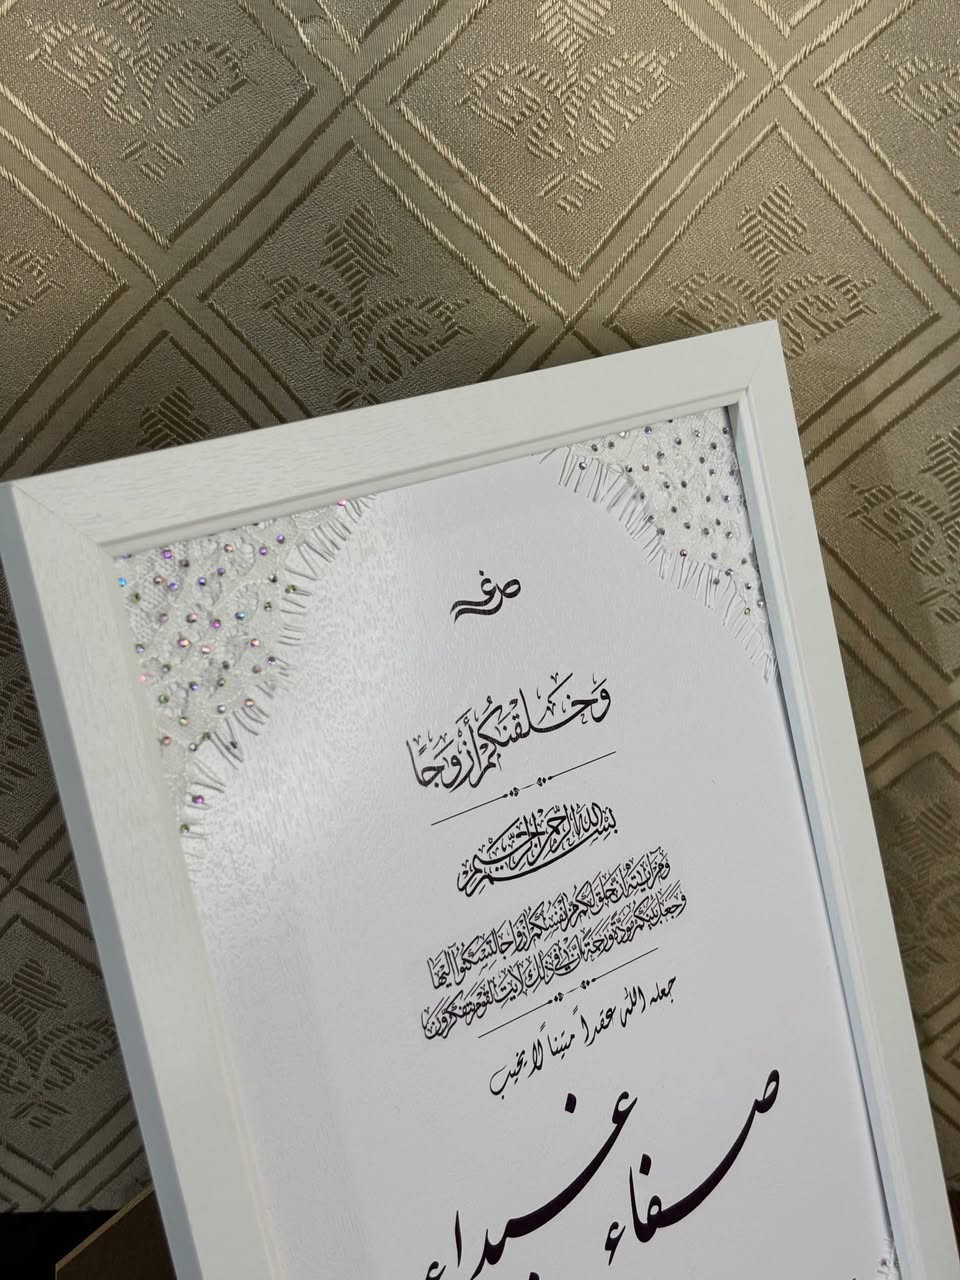 وَخَلَقْنَٰكُمْ أَزْوَٰجًا
بسم الله الرحمن الرحيم
وَمِنْ ءَايَٰتِهِ أَنْ خَلَقَ لَكُم مِّنْ أَنفُسِكُمْ أَزْوَٰجًا لِّتَسْكُنُوٓا۟ إِلَيْهَا
وَجَعَلَ بَيْنَكُم مَّوَدَّةً وَرَحْمَةً إِنَّ فِي ذَٰلِكَ لَآيَٰتٍ لِّقَوْمٍ يَتَفَكَّرُونَ
جعله الله عقداً متيناً لا يخيب
صفاء
غيداء